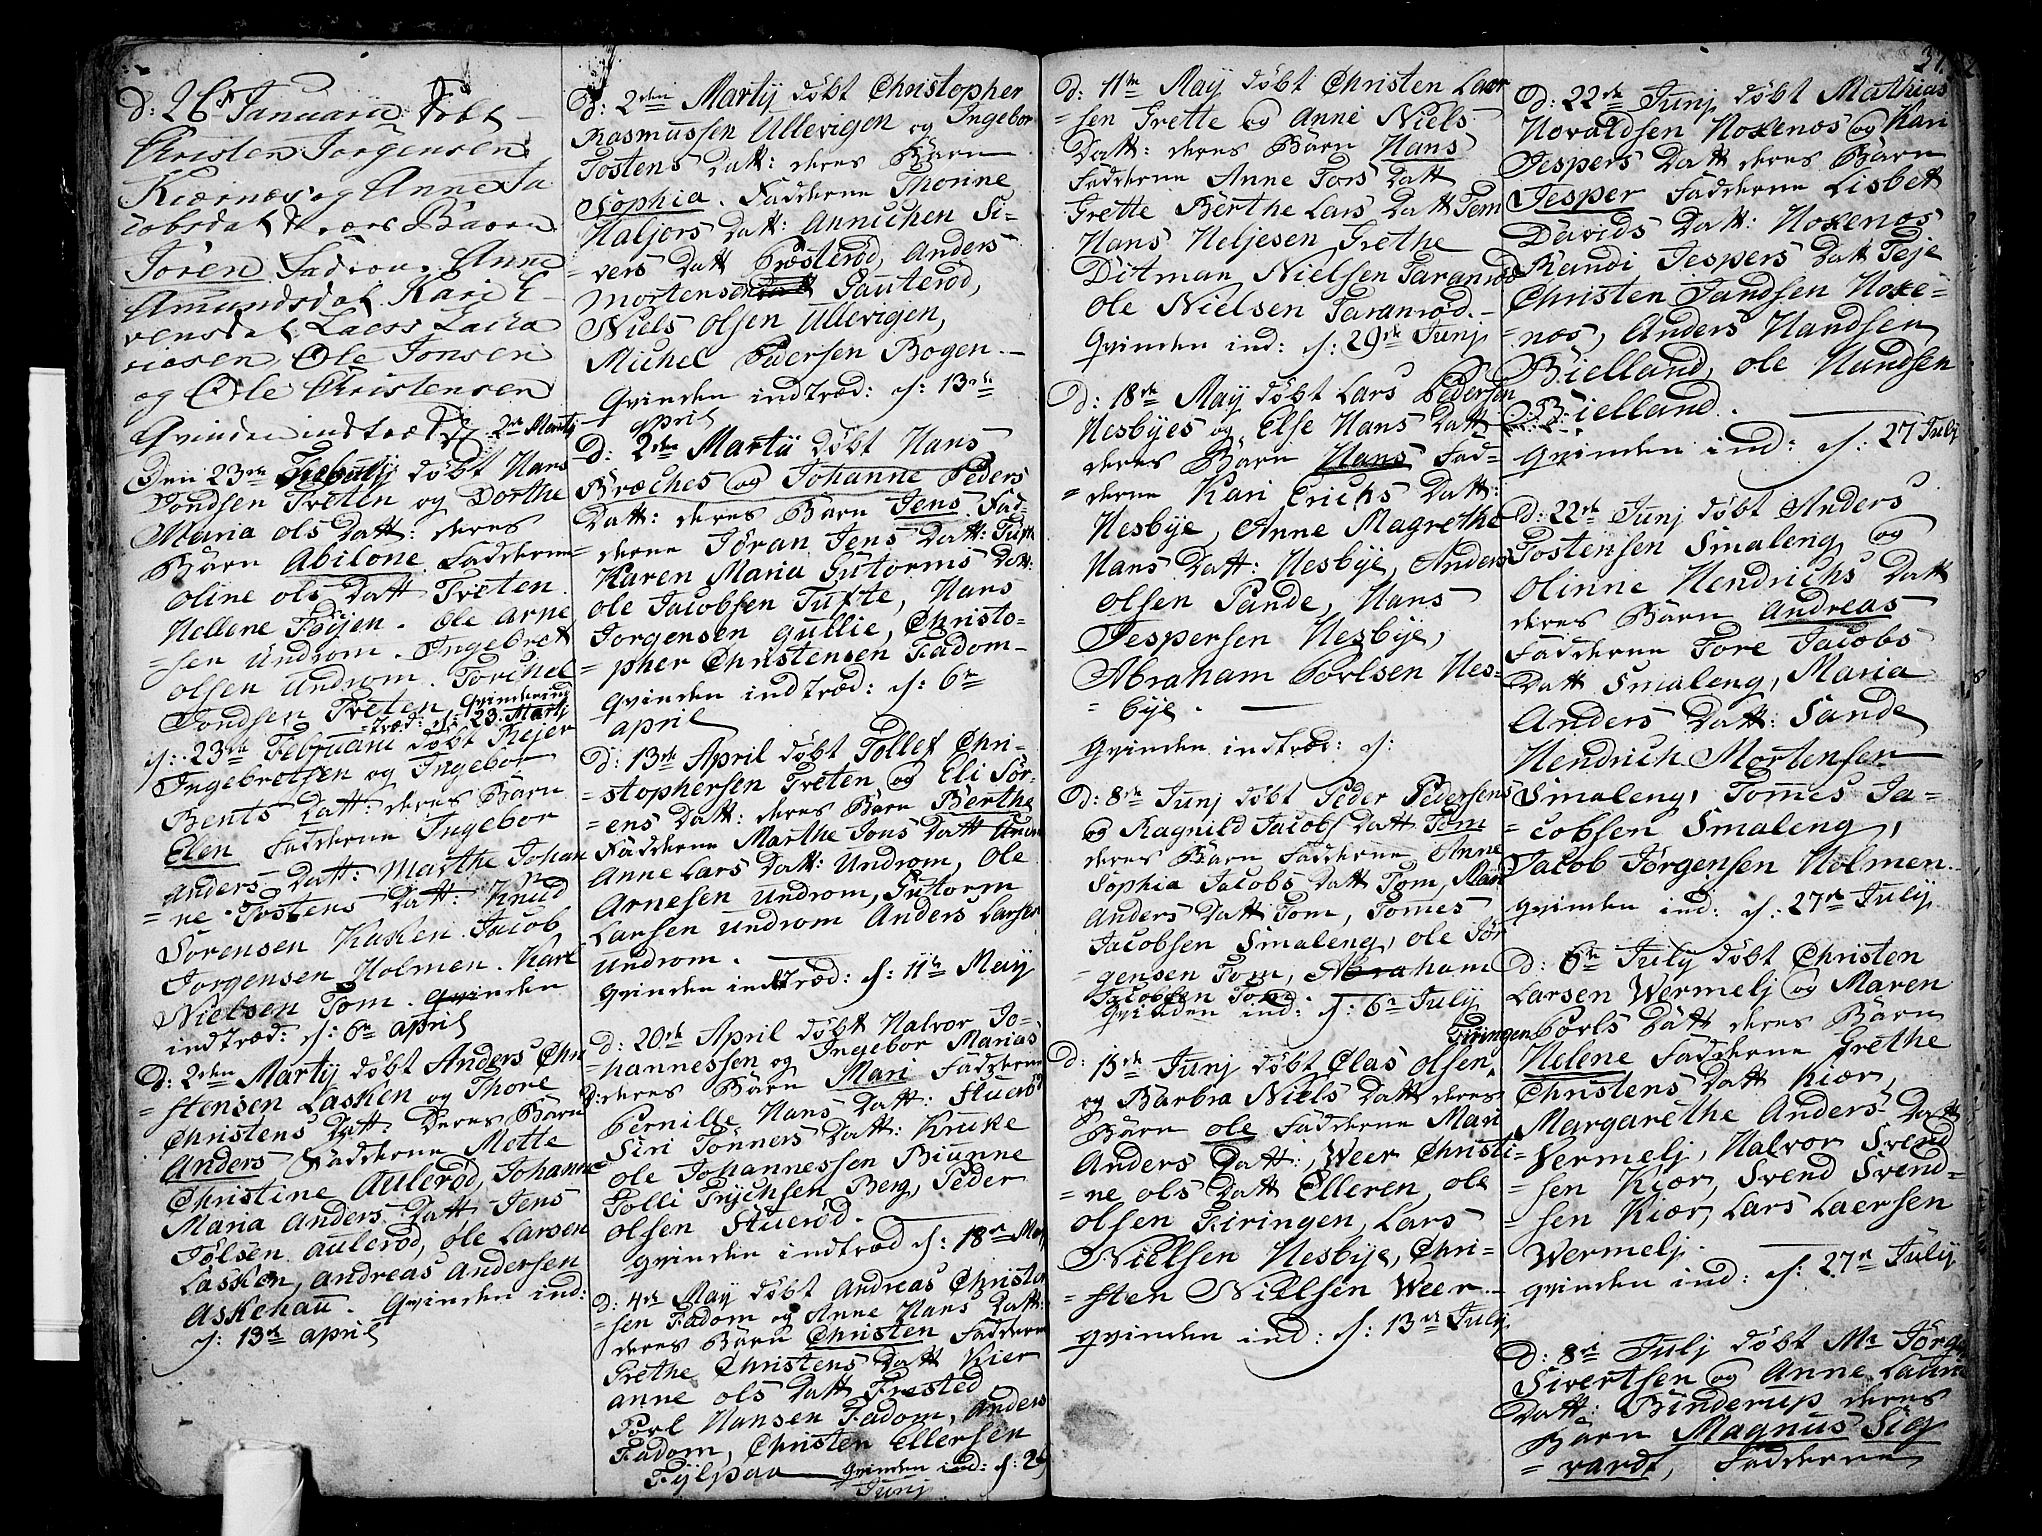 37.
d: 26d Januarii døbt
Christen Jorgensen
Kiærnæs og Anne Ja
cobsdat deres Baarn
Jören Fadrene Anne
Amundsdat Kari E
vensdat Laers Zacha
riasen Ole Jonsen
og Ole Christensen
Qvinden indtræd d: 2den Martij
Den 23de Febrij døbt Hans
Jondsen Treten og Dorthe
Maria ols Datt: deres
Bârn Abilone Fadderne
oline ols Datt Treten
Hellene Föyen. Ole Arne
=sen Undrom. Ingebret
olsen Undrom. Torchel
Jondsen Treten Qvinden ind
=træd: d: 23. Martij
d: 23de Februarii döbt Reier
Ingebretsen og Ingebor
Bents Datt: deres Bârn
Elen Fadderne Ingebor
Anders Datt: Marthe Johan
=ne Tostens Datt: Knud
Sörensen Kasken. Jacob
Jorgensen Holmen. Karl
Nielsen Tom. qvinden
indtræd: d: 6te april
D: 2den Martij døbt Anders Chri
=stensen Lasken og Thore
Christens Datt: Deres Bârn
Anders Fadderne Mette
Christine Aulerød, Johanne
Maria Anders Datt Jens
Jölsen aulerød, ole Larsen
Lasken, andreas Andersen
Askehau. Qvinden ind:
d: 13de april
D: 2den Martij døbt Christopher
Rasmussen Ullevigen og Ingebor
Tostens Datt: deres Bârn
Sophia. Fadderne Thorine
Haljors Datt: Annichen Si-
=vers Datt Præsterød, Anders
Mortensen Gauterød,
Niels Olsen Ullevigen,
Michel Pedersen Bogen.
Qvinden indtræd: d: 13de
april
D: 2den Martij döbt Hans
Bræches og Johanne Peders
Datt: deres Bârn Jens Fad-
=derne Jöran Jens Datt: Tufte
Karen Maria Gutorms Datt:
ole Jacobsen Tufte, Hans
Jorgensen gullie, Christo-
=pher Christensen Fadom-
Qvinden indtræd: d: 6te
april
D: 13de April döbt Tollef Chri-
=stophersen Treten og Eli Sör-
=ens Datt: deres Bârn Berthe
Fadderne Marthe Jons Datt
Anne Lars Datt: Undrom, Ole
Arnesen Undrom, Gutorm
Larsen Undrom Anders Larsen
Undrom.
Qvinden indtræd: d: 11te May
D: 20de April döbt Halvor Jo-
hannessen og Ingebor Marias
D: deres Bârn Mari Fadderne
Pernille Hans Datt:
Siri Tönners Datt: Kruke
ole Johannessen Biunne
Tolli Trychsen Berg, Peder
olsen Stuerød.
Qvinden indtræd d: 18de May
D: 4de May døbt Andreas Christe
sen Fadom og Anne Hans Datt:
deres Bârn Christen Fadderne
Grethe Christens Datt Kier
anne ols Datt Frested
Porl Hansen Fadom, Anders
Fadom, Christen Ellersen
Fylpaa Qvinden ind: d: 29
Junj
D: 11te May döbt Christen Laer
=sen Grette og Anne Niels
Datt: deres Bârn Hans
Fadderne Anne Tors Datt
Grette Berthe Lars Datt Tem
Hans Heljesen Grethe
Ditman Nielsen Taranrød
ole Nielsen Taranrød.
Qvinden ind: d: 29de Junj
D: 18de May döbt Lars Pedersen
Nesbyes og Else Hans Datt
deres Bârn Hans Fad-
=derne Kari Erichs Datt:
Nesbye, Anne Magrethe
Hans Datt: Nesbye, Anders
olsen Sande, Hans
Jespersen Nesbye,
Abraham Porlsen Nes-
=bye.
Qvinden indtræd: d:
D: 8de Junj döbt Peder Pedersens
og Ragnild Jacobs Datt Tom
deres Bârn Fadderne Anne
Sophia Jacobs Datt Tom, Mari
Anders Datt Tom, Tomes
Jacobsen Smaleng, ole Jör
=gensen Tom, Abraham
Jacobsen Tom.
Qvinden ind: d: 6te Julij
Giringen
D: 15de Junj döbt Clas olsen
og Barbra Niels Datt deres
Bârn ole Fadderne Mari
Anders Datt:, Weer Christi-
=ne ols Datt Elleren, ole
olsen Giringen, Lars
Nielsen Nesbye, Chri-
=sten Nielsen Weer
qvinden ind: d: 13de Julij
D: 22de Junj döbt Mathias
Hovaldsen Hoxenæs og Kari
Jespers Datt deres Bârn
Jesper Fadderne Lisbet
Davids Datt: Hoxenæs
Randi Jespers Datt Teje
Christen Tandsen Hoxe-
=næs, Anders Handsen
Bielland, ole Handsen
Bielland.
Qvinden ind: d: 27 Julij
D: 22de Junj döbt Anders
Tostensen Smaleng og
Olinne Hendrichs Datt
deres Bârn Andreas
Fadderne Tore Jacobs
Datt Smaleng, Maria
Anders Datt: Sande
Hendrich Mortensen
Smaleng, Tomes Ja-
=cobsen Smaleng,
Jacob Jörgensen Holmen.
qvinden ind: d: 27de Julij
D: 6te Julij döbt Christen
Larsen Wermelj og Maren
Porls Datt deres Bârn
Helene Fadderne Grethe
Christens Datt Kiær,
Margarethe Anders Datt
Vermelj, Halvor Svend
=sen Kiær, Svend Svend-
=sen Kiær, Lars Laersen
Wermelj.
qvinden ind: d: 27de Julij
D: 8de Julj döbt Mr Jörgen
Sivertsen og Anne Laurs
Datt: Binderup deres
Bârn Magnus Sig
=vardt, Fadderne